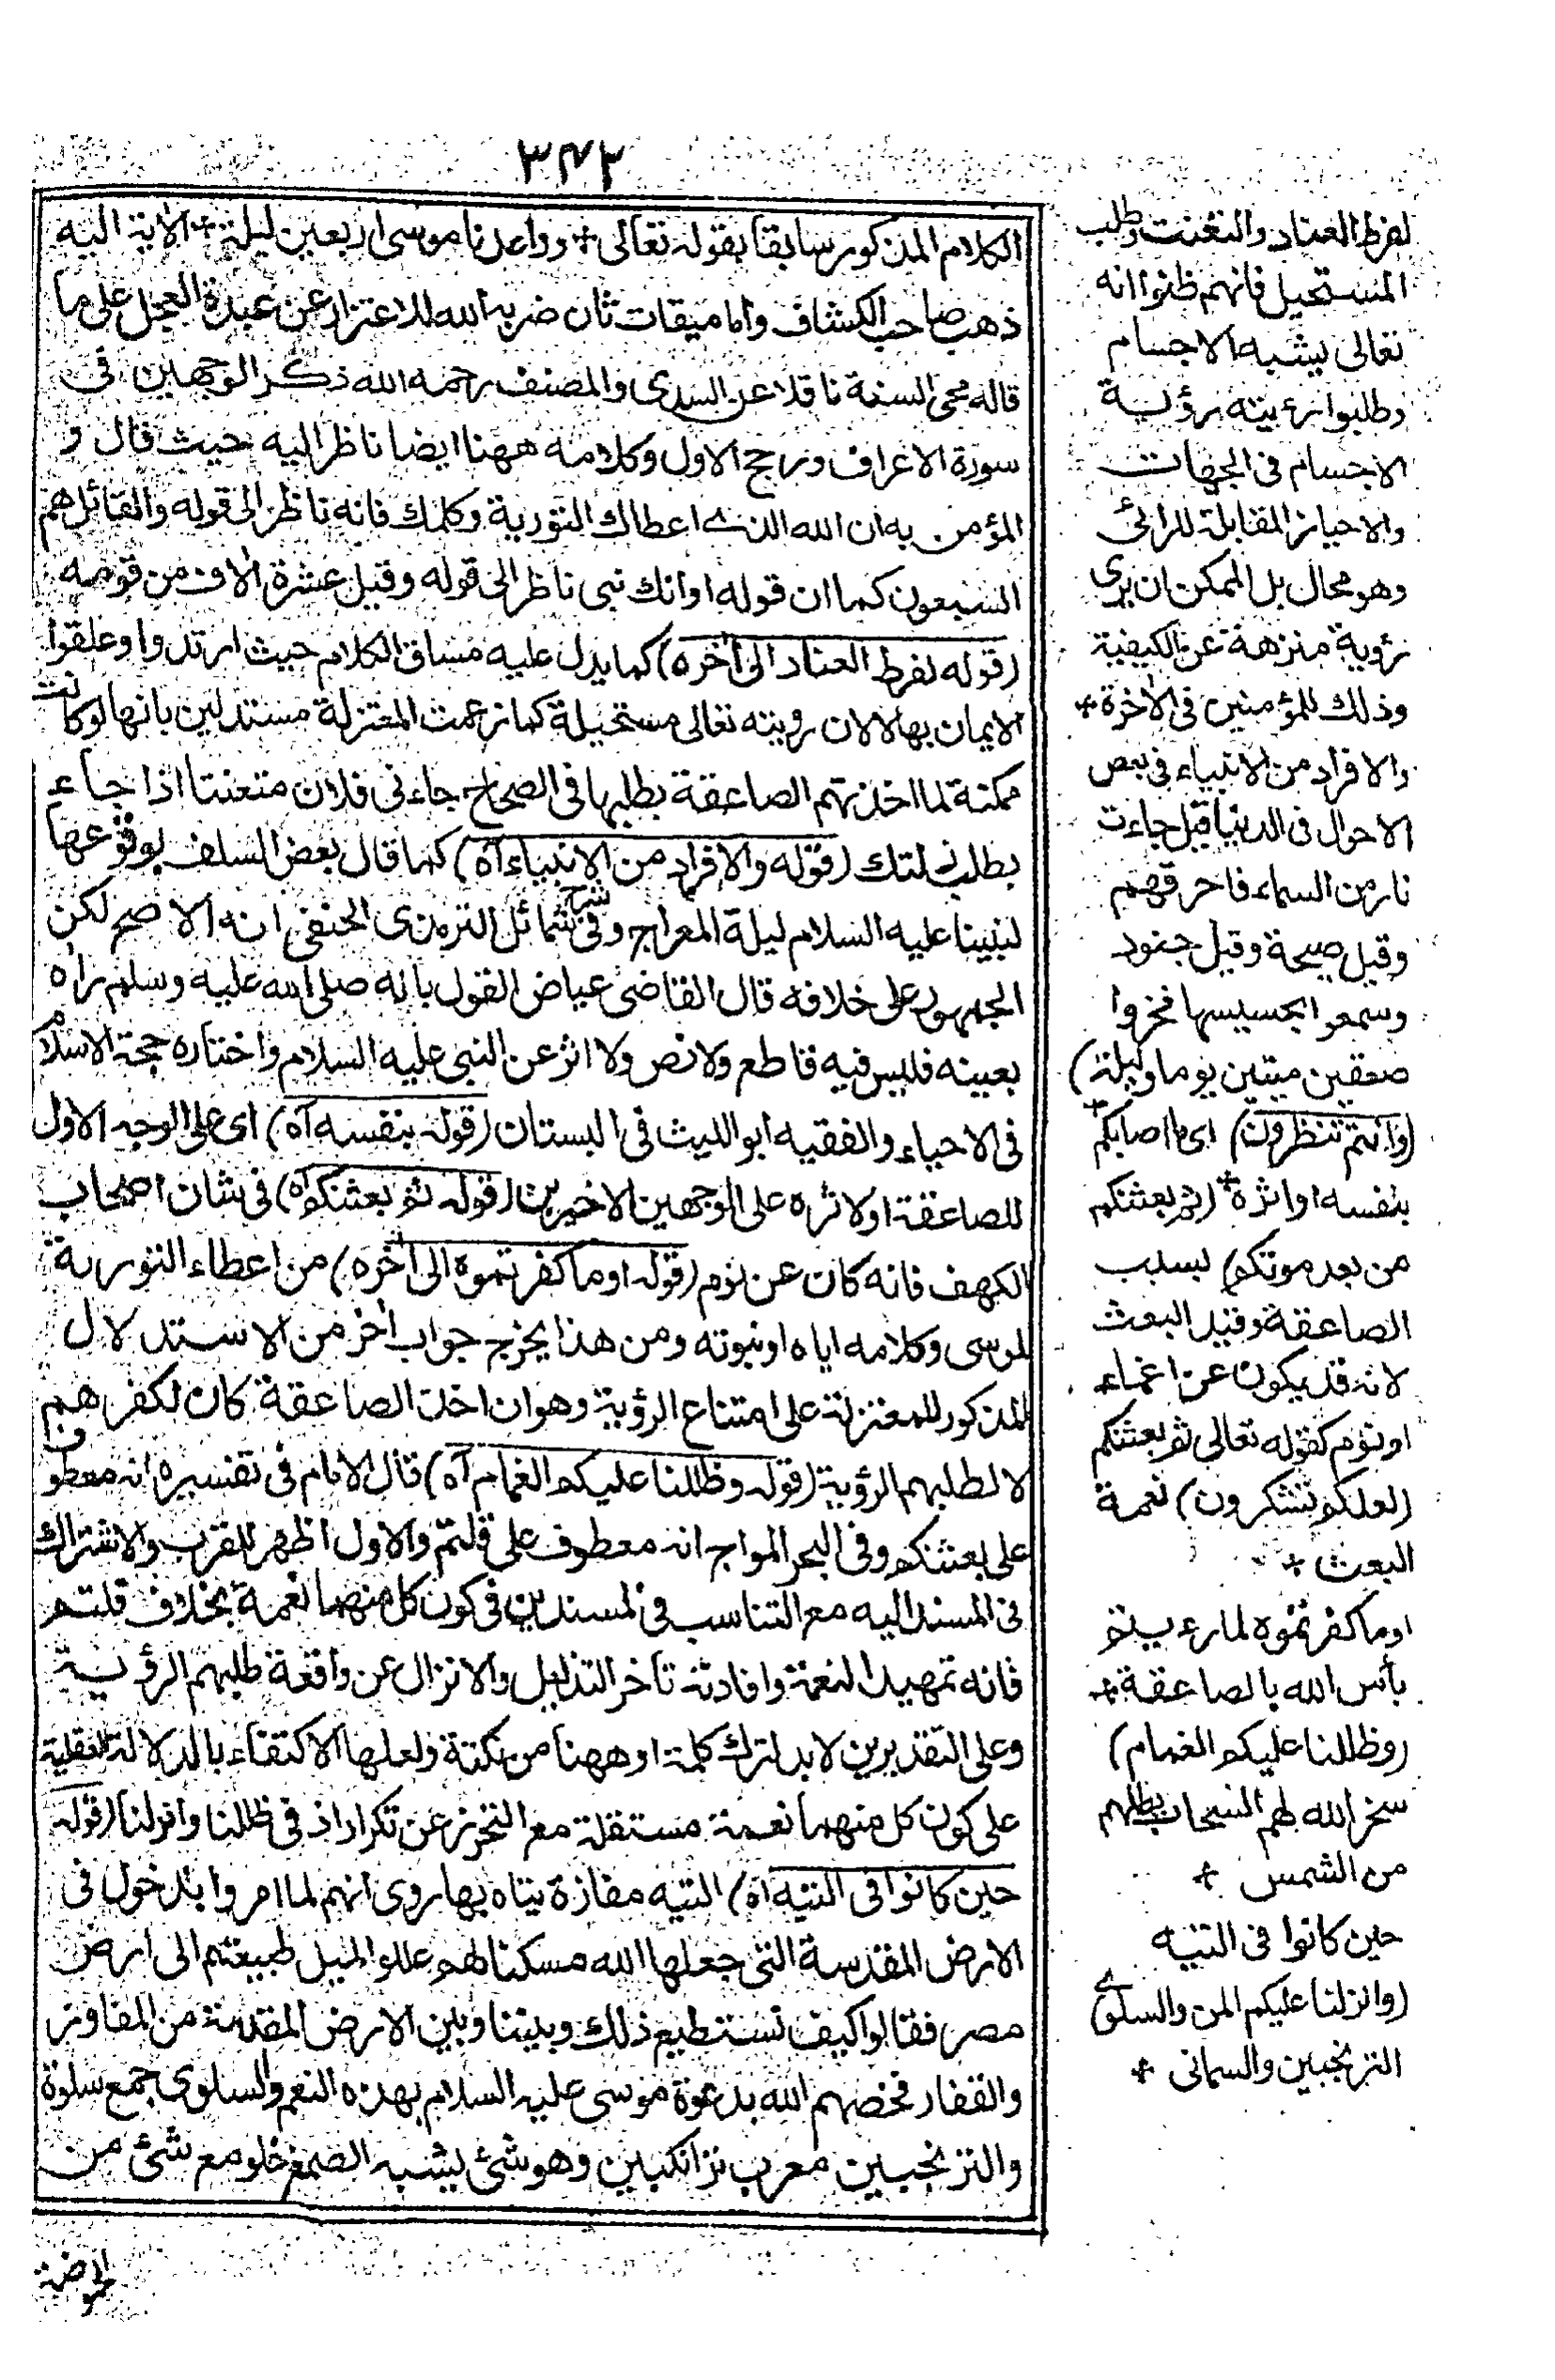 ٣٤٢
الكلام المذكور سابقا بقوله تعالى + وواعدنا موسى اربعين ليلة + الاية اليه
ذهب صاحب الكشاف واما ميقات ثان ضربه الله للاعتزار عن عبدة العجل على ما
قاله محى السنة ناقلا عن السدى والمصنف رحمه الله ذكر الوجهين فى
سورة الاعراف ورجح الاول وكلامه ههنا ايضا ناظر اليه حيث قال و
المؤمن به ان الله الذى اعطاك التورية وكلمك فانه ناظر الى قوله والقائل هم
السبعون كما ان قوله او انك نبى ناظر الى قوله وقيل عشرة الاف من قومه
(قوله لفرط العناد الى اخره) كما يدل عليه مساق الكلام حيث ارتدوا وعلقوا
الايمان بها لا لان رويته تعالى مستحيلة كما زعمت المعتزلة مستدلين بانها لو كانت
ممكنة لما اخذتهم الصاعقة بطلبها فى الصحاح جاءنى فلان متعنتا اذا جاء
يطلب زلتك (قوله والافراد من الانبياء آه) كما قال بعض السلف بوقوعها
لنبينا عليه السلام ليلة المعراج وفى شرح شمائل الترمذى الحنفى انه الاصح لكن
الجمهور على خلافه قال القاضى عياض القول بانه صلى الله عليه وسلم راه
بعينه فليس فيه قاطع ولا نص ولا اثر عن النبى عليه السلام واختاره حجة الاسلام
فى الاحياء والفقيه ابو الليث فى البستان (قوله بنفسه آه) اى على الوجه الاول
للصاعقة او لاثره على الوجهين الاخيرين (قوله ثم بعثنكم آه) فى شان اصحاب
الكهف فانه كان عن نوم (قوله او ما كفرتموه الى اخره) من اعطاء التورية
لموسى وكلامه اياه او نبوته ومن هذا يخرج جواب اخر من الاستدلال
المذكور للمعتزلة على امتناع الرؤية وهو ان اخذ الصاعقة كان لكفرهم
لا لطلبهم الرؤية (قوله وظللنا عليكم الغمام آه) قال الامام فى تفسيره انه معطوف
على بعثنكم وفى البحر المواج انه معطوف على قلتم والاول اظهر للقرب والاشتراك
فى المسند اليه مع التناسب فى المسندين فى كون كل منهما نعمة بخلاف قلتم
فانه تمهيد النعمة وافادته تأخر التذليل والانزال عن واقعة طلبهم الرؤية
وعلى التقديرين لا بد لترك كلمة او ههنا من نكتة ولعلها الاكتفاء بالدلالة العقلية
على كون كل منهما نعمة مستقلة مع التحرز عن تكرار اذ فى ظللنا وانزلنا (قوله
حين كانوا فى التيه آه) التيه مفازة يتاه بها روى انهم لما امروا بدخول فى
الارض المقدسة التى جعلها الله مسكنا لهم عللوا لميل طبيعتهم الى ارض
مصر فقالوا كيف نستطيع ذلك وبيننا وبين الارض المقدسة من المفاوز
والقفار فخصهم الله بدعوة موسى عليه السلام بهذه النعم والسلوى جمع سلوة
والترنجبين معرب ترانكبين وهو شئ يشبه الصمغ حلو مع شئ من
الحموضة
لفرط العناد والتعنت وطلب
المستحيل فانهم ظنوا انه
تعالى يشبه الاجسام
وطلبوا رءيته رؤية
الاجسام فى الجهات
والاحياز المقابلة للرائى
وهو محال بل الممكن ان يرى
رؤية منزهة عن الكيفية
وذلك للمؤمنين فى الاخرة +
والافراد من الانبياء فى بعض
الاحوال فى الدنيا قيل جاءت
نار من السماء فاحرقتهم
وقيل صيحة وقيل جنود
وسمعوا بحسيسها فخروا
صعقين ميتين يوما وليلة)
(وانتم تنظرون) اى ما اصابكم +
بنفسه او اثره + (ثم بعثنكم
من بعد موتكم) بسبب
الصاعقة وقيد البعث
لانه قد يكون عن اغماء
او نوم كقوله تعالى ثم بعثنكم
(لعلكم تشكرون) نعمة
البعث +
او ما كفرتموه لما رءيتم
بأس الله بالصاعقة +
(وظللنا عليكم الغمام)
سخر الله لهم السحاب يظلهم
من الشمس +
حين كانوا فى التيه
(وانزلنا عليكم المن والسلوى
الترنجبين والسمانى +